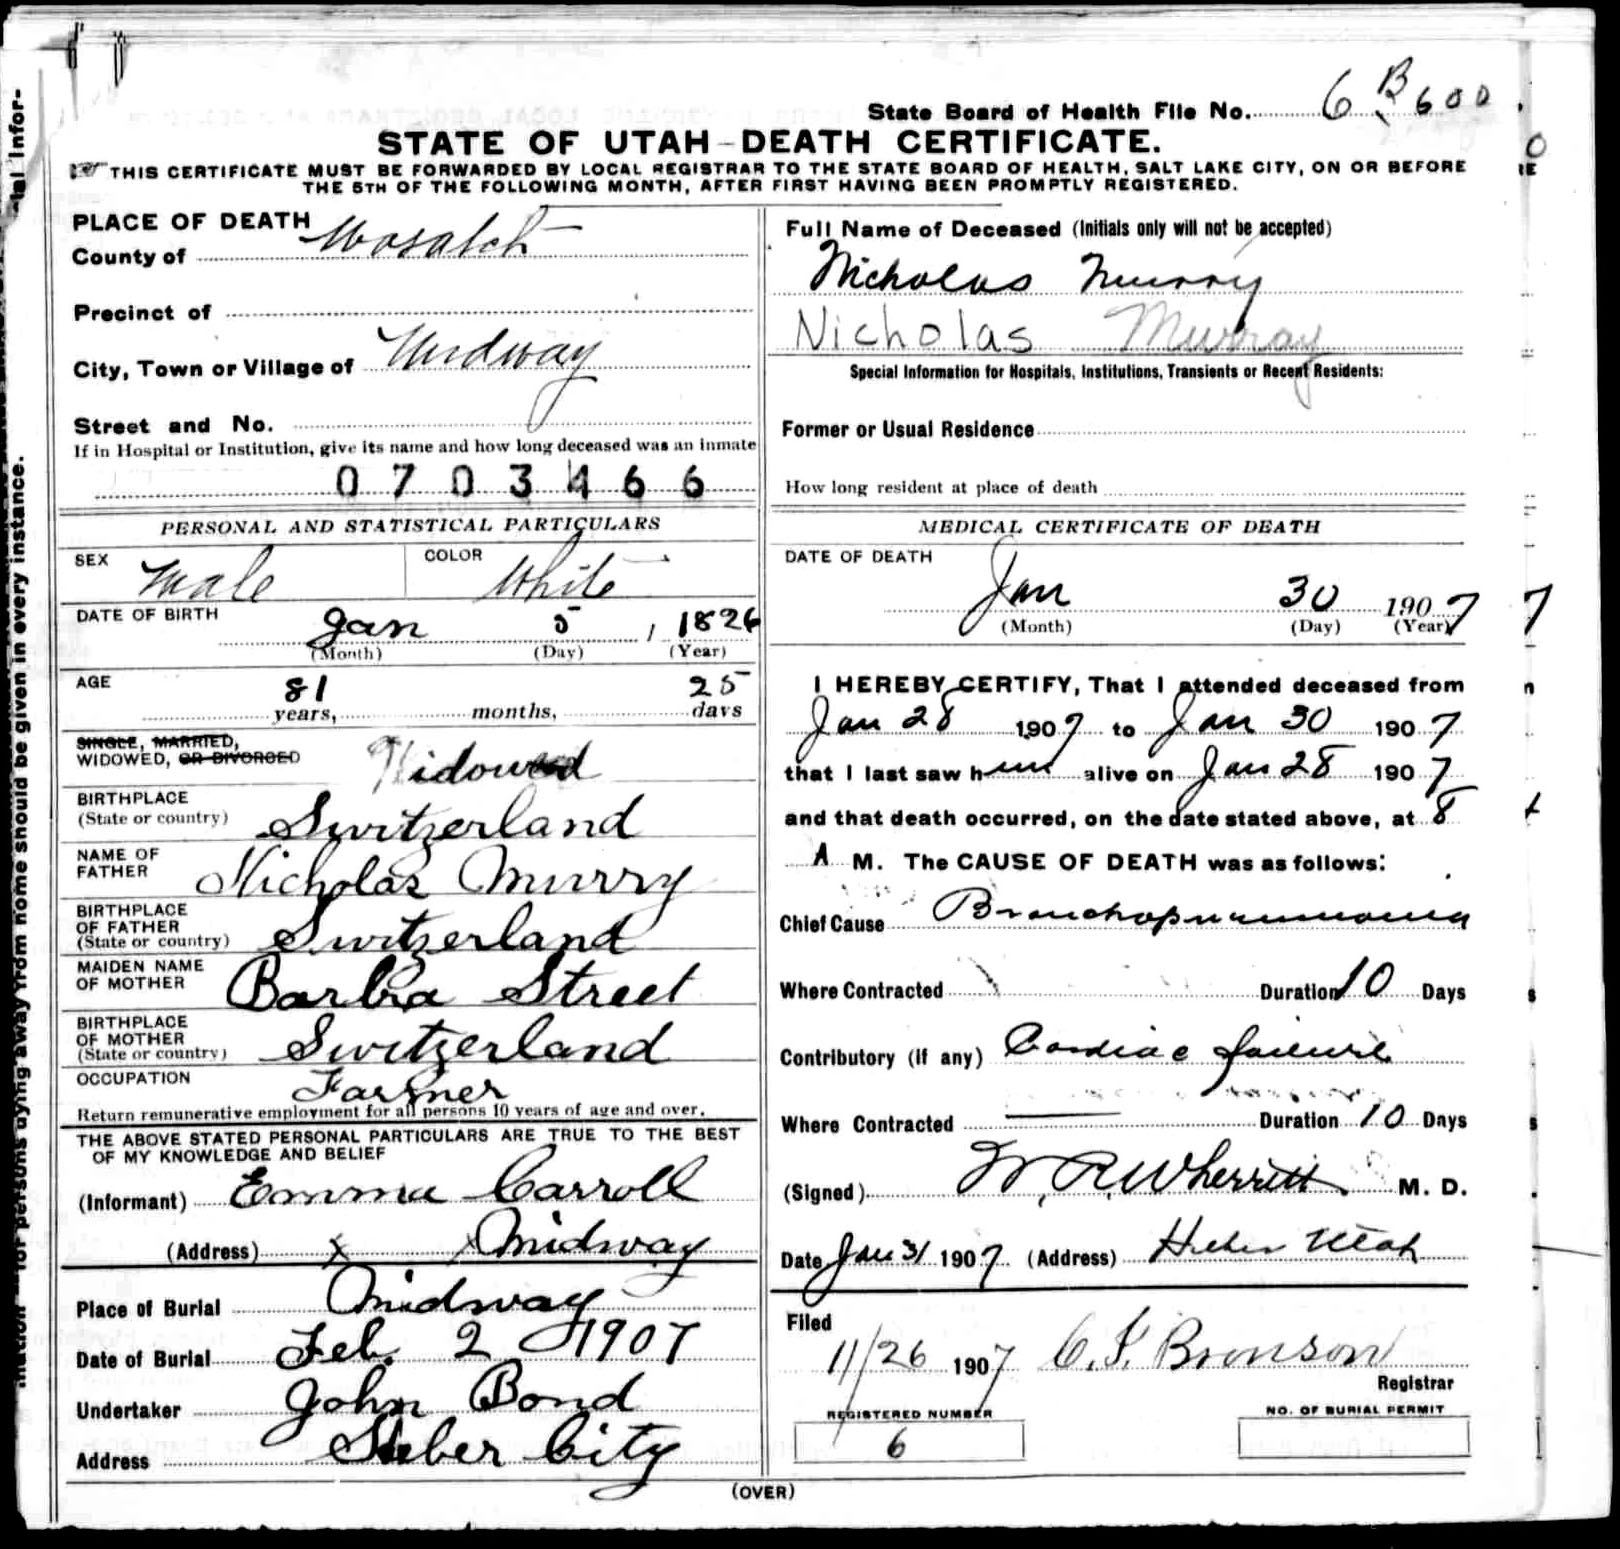 State Board of Health File No. 6 B 600
STATE OF UTAH-DEATH CERTIFICATE.
THIS CERTIFICATE MUST BE FORWARDED BY LOCAL REGISTRAR TO THE STATE BOARD OF HEALTH, SALT LAKE CITY, ON OR BEFORE
THE 5TH OF THE FOLLOWING MONTH, AFTER FIRST HAVING BEEN PROMPTLY REGISTERED.
PLACE OF DEATH
County of Wasatch
Precinct of
City, Town or Village of Midway
Street and No.
If in Hospital or Institution, give its name and how long deceased was an inmate
0703466
PERSONAL AND STATISTICAL PARTICULARS
SEX Male COLOR White
DATE OF BIRTH Jan 5, 1826
(Month) (Day) (Year)
AGE 81 years, months, 25 days
SINGLE, MARRIED,
WIDOWED, OR DIVORCED Widowed
BIRTHPLACE
(State or country) Switzerland
NAME OF
FATHER Nicholas Murry
BIRTHPLACE
OF FATHER
(State or country) Switzerland
MAIDEN NAME
OF MOTHER Barbra Street
BIRTHPLACE
OF MOTHER
(State or country) Switzerland
OCCUPATION Farmer
Return remunerative employment for all persons 10 years of age and over.
THE ABOVE STATED PERSONAL PARTICULARS ARE TRUE TO THE BEST
OF MY KNOWLEDGE AND BELIEF
(Informant) Emma Carroll
(Address) X Midway
Place of Burial Midway
Date of Burial Feb. 2 1907
Undertaker John Bond
Address Heber City
Full Name of Deceased (Initials only will not be accepted)
Nicholas Murry
Nicholas Murray
Special Information for Hospitals, Institutions, Transients or Recent Residents:
Former or Usual Residence
How long resident at place of death
MEDICAL CERTIFICATE OF DEATH
DATE OF DEATH
Jan 30 1907
(Month) (Day) (Year)
I HEREBY CERTIFY, That I attended deceased from
Jan 28 1907 to Jan 30 1907
that I last saw him alive on Jan 28 1907
and that death occurred, on the date stated above, at 8
A M. The CAUSE OF DEATH was as follows:
Chief Cause Bronchopneumonia
Where Contracted Duration 10 Days
Contributory (if any) Cardiac failure
Where Contracted Duration 10 Days
(Signed) W. R. Wherritt M. D.
Date Jan 31 1907 (Address) Heber Utah
Filed
11/26 1907 C. F. Bronson
Registrar
REGISTERED NUMBER
6
NO. OF BURIAL PERMIT
(OVER)